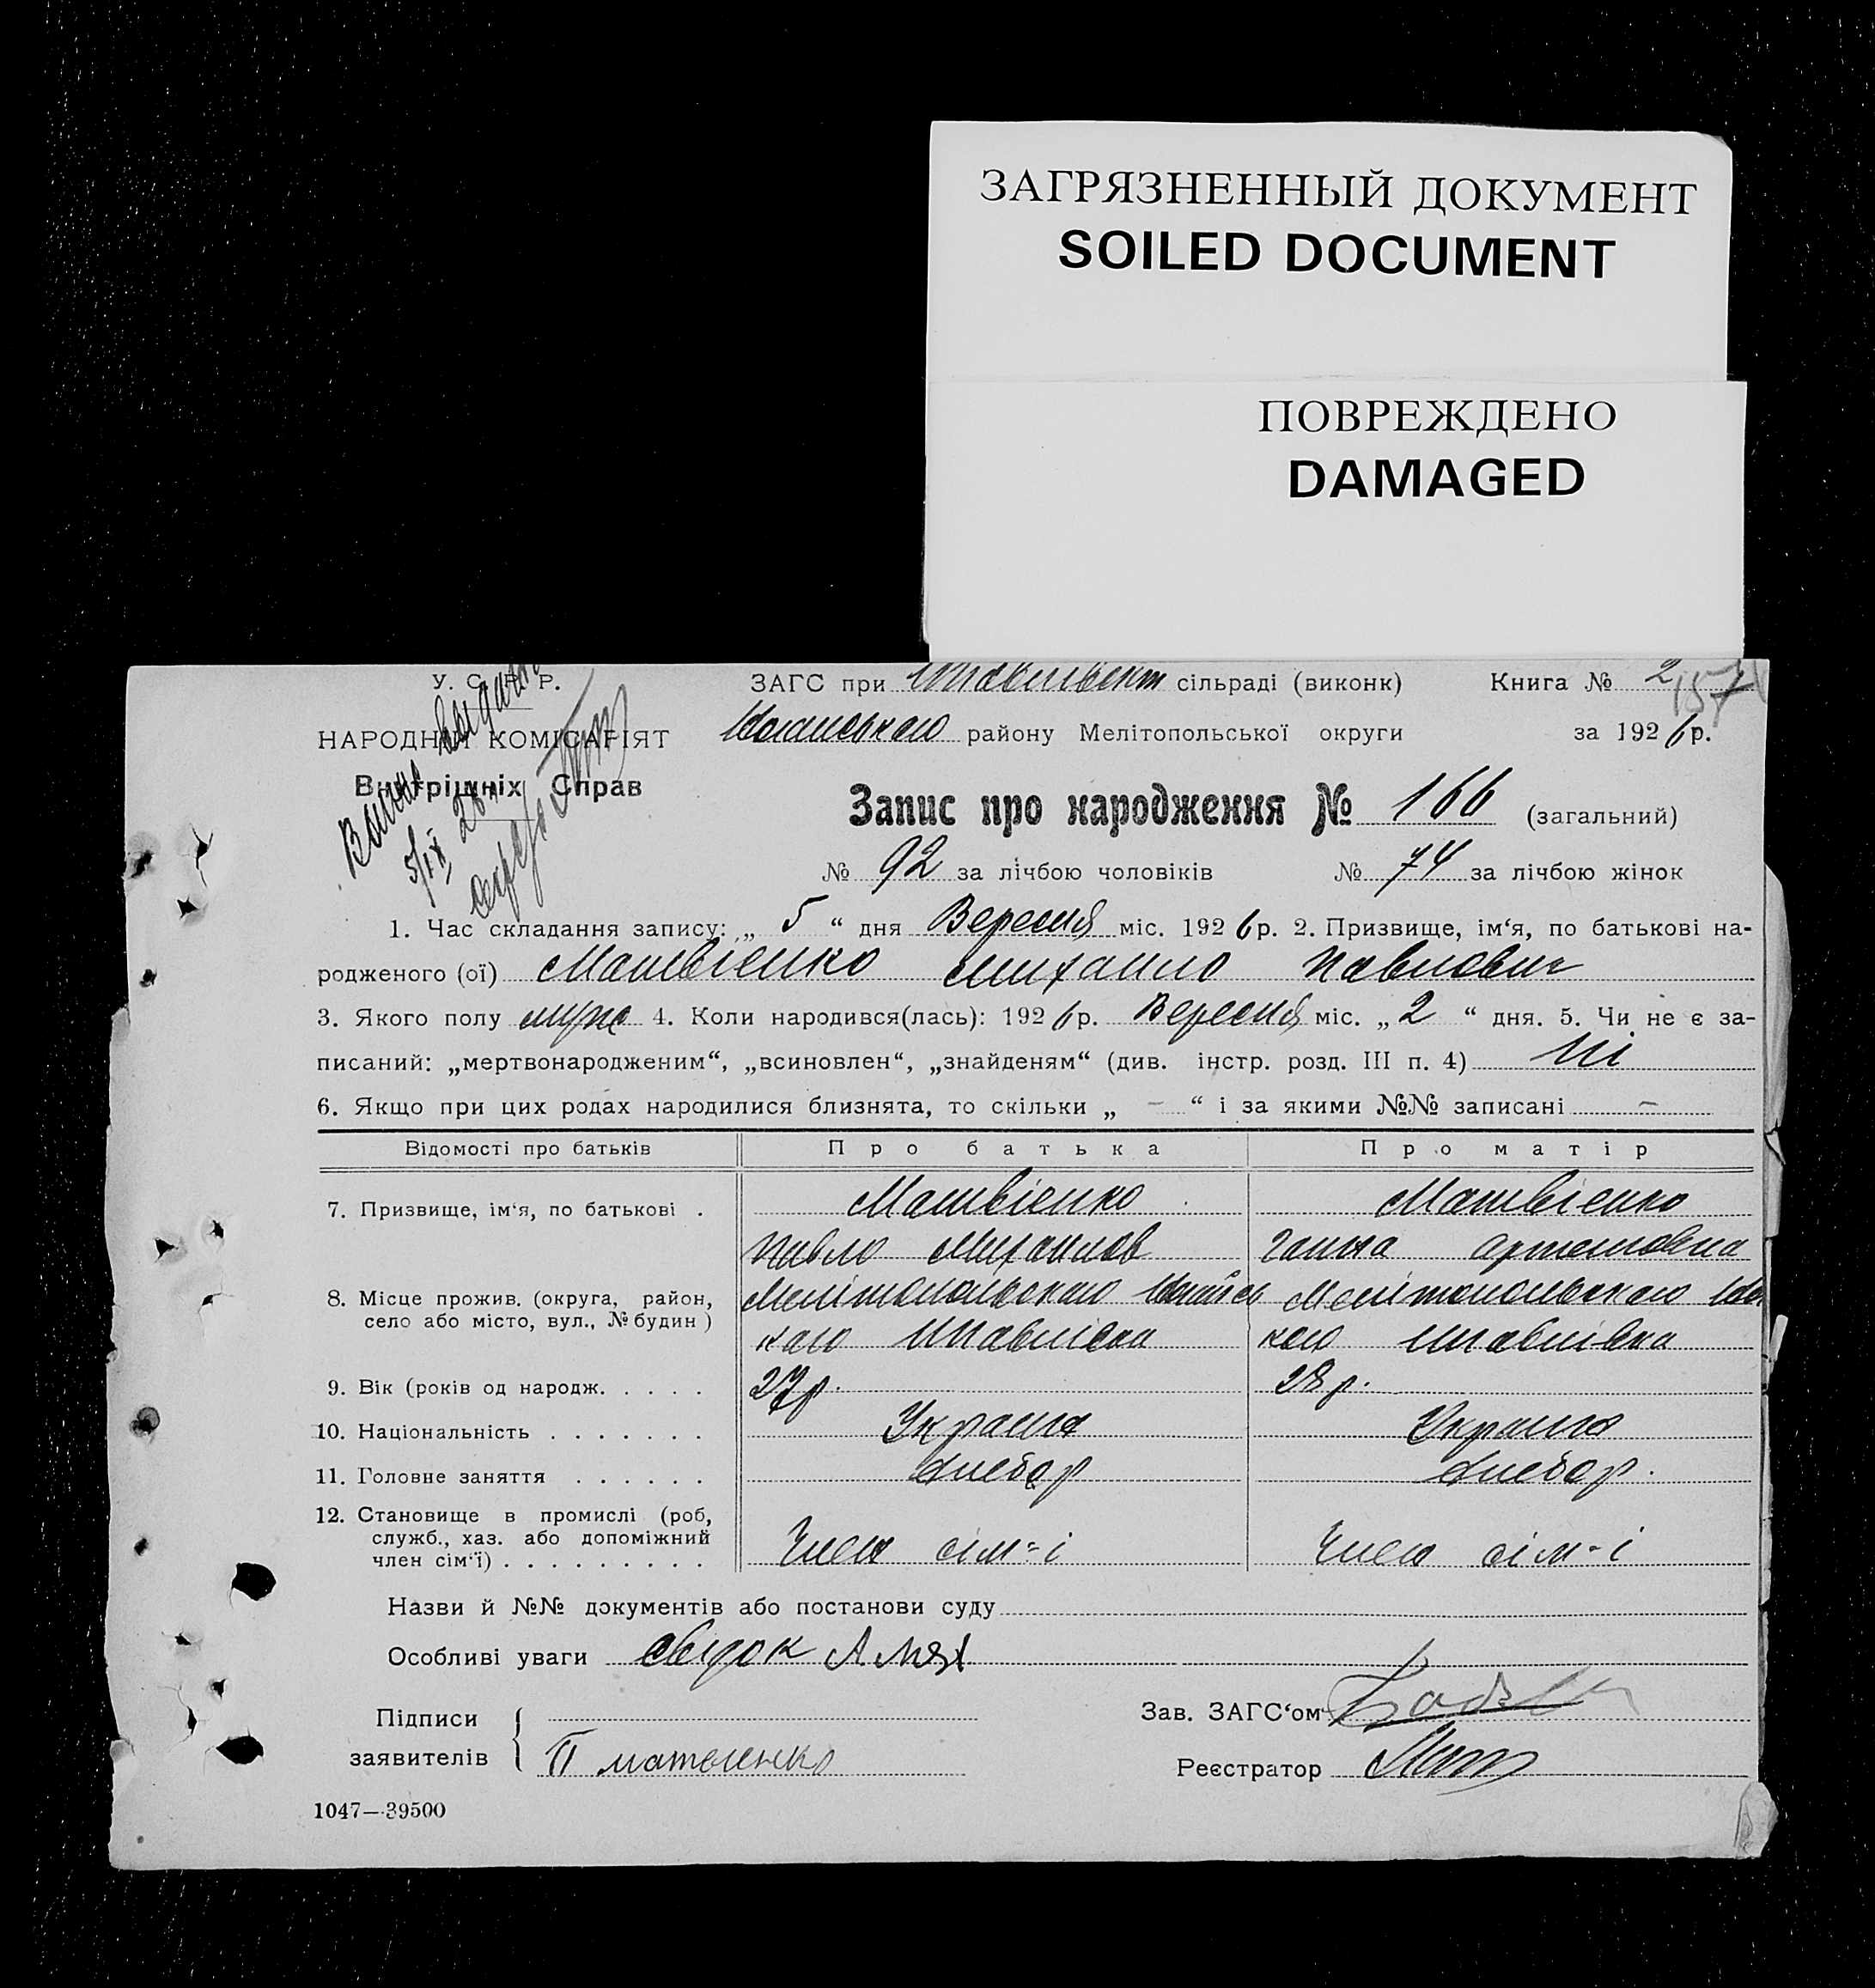 ЗАГРЯЗНЕННЫЙ ДОКУМЕНТ
SOILED DOCUMENT
ПОВРЕЖДЕНО
DAMAGED
У. С. Р. Р.
НАРОДНІЙ КОМІСАРІЯТ
Внутрішніх Справ
5/IX 26
ЗАГС при сільраді (виконк) Книга № 2
району Мелітопольської округи за 1926 р.
Запис про народження № 166 (загальний)
№ 92 за лічбою чоловіків № 74 за лічбою жінок
1. Час складання запису: „ 5 “ дня Вересня міс. 1926 р. 2. Призвище, ім‘я, по батькові на-
родженого (ої) Матвієнко Михайло Павлович
3. Якого полу муж 4. Коли народився(лась): 1926 р. Вересня міс. „ 2 “ дня. 5. Чи не є за-
писаний: „мертвонародженим“, „всиновлен“, „знайденям“ (див. інстр. розд. III п. 4) Ні
6. Якщо при цих родах народилися близнята, то скільки „ – “ і за якими №№ записані –
Відомості про батьків Про батька Про матір
7. Призвище, ім‘я, по батькові . Матвієнко Матвієнко
Павло Михайлов Ганна Артемовна
8. Місце прожив. (округа, район, Мелітопольского Мелітопольского
село або місто, вул., № будин)
9. Вік (років од народж. . . . . 27 р. 28 р.
10. Національність . . . . . . . Україн Україн
11. Головне заняття . . . . . . Хлебор Хлебор.
12. Становище в промислі (роб,
служб., хаз. або допоміжний
член сім‘ї) . . . . . . . . . Член сім-і Член сім-і
Назви й №№ документів або постанови суду
Особливі уваги свідок
Підписи Зав. ЗАГС‘ом
заявителів П Матвиенко Реєстратор
1047—39500